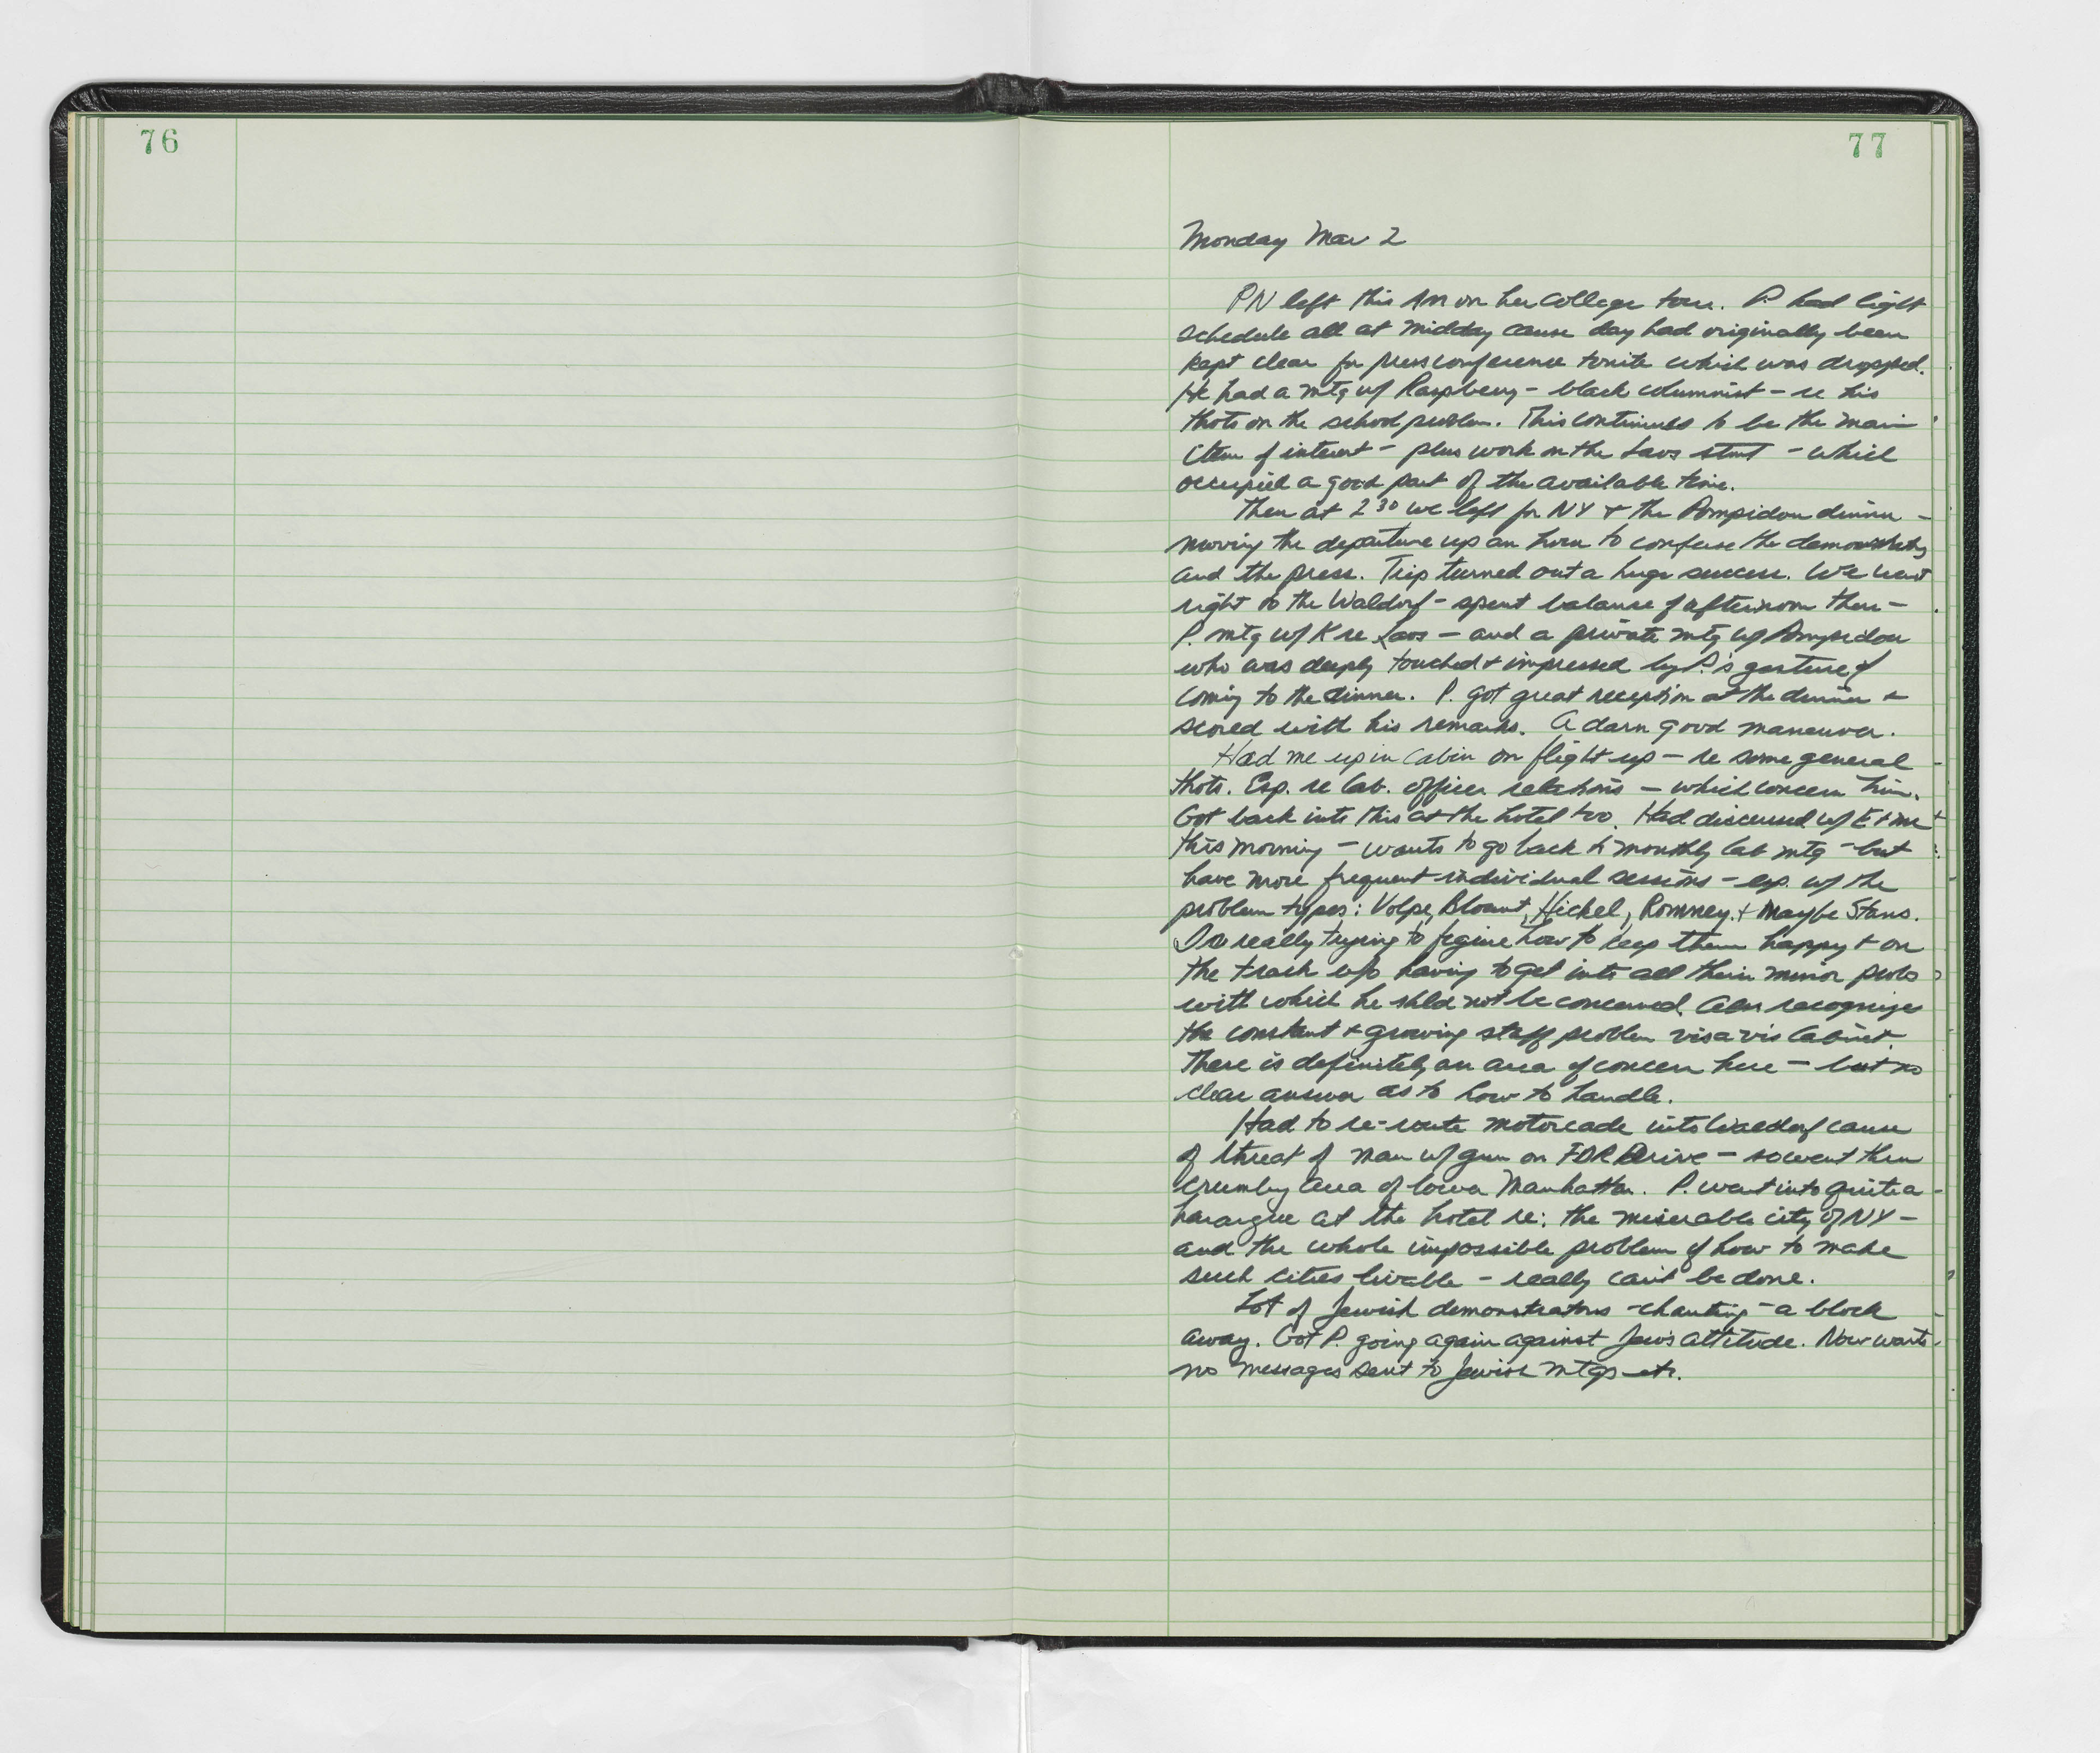 76
77
Monday Mar 2
PN left this AM on her college tour. P. had light
schedule all at midday cause day had originally been
kept clear for press conference tonite which was dropped.
He had a mtg w/ Raspberry - black columnist - re his
thots on the school problem. This continues to be the main
item of interest - plus work on the Laos stmt - which
occupied a good part of the available time.
Then at 2 30 we left for NY & the Pompidou dinner -
moving the departure up an hour to confuse the demonstrators
and the press. Trip turned out a huge success. We went
right to the Waldorf - spent balance of afternoon there -
P. mtg w/ K re Laos - and a private mtg w/ Pompidou
who was deeply touched & impressed by P.'s gesture of
coming to the dinner. P. got great reception at the dinner &
scored with his remarks. A darn good maneuver.
Had me up in cabin on flight up - re some general
thots. Esp. re Cab. officer relations - which concern him.
Got back into this at the hotel too. Had discussed w/ E & me
this morning - wants to go back to monthly Cab mtg - but
have more frequent individual sessions - esp. w/ the
problem types: Volpe, Blount, Hickel, Romney & maybe Stans.
Is really trying to figure how to keep them happy & on
the track w/o having to get into all their minor probs
with which he shld not be concerned. Also recognizes
the constant & growing staff problem vis a vis Cabinet.
There is definitely an area of concern here - but no
clear answer as to how to handle.
Had to re-route motorcade into Waldorf cause
of threat of man w/ gun on FDR Drive - so went thru
crumby area of lower Manhattan. P. went into quite a
harangue at the hotel re: the miserable city of NY -
and the whole impossible problem of how to make
such cities livable - really can't be done.
Lot of Jewish demonstrators - chanting - a block
away. Got P. going again against Jews attitude. Now wants
no messages sent to Jewish mtgs etc.